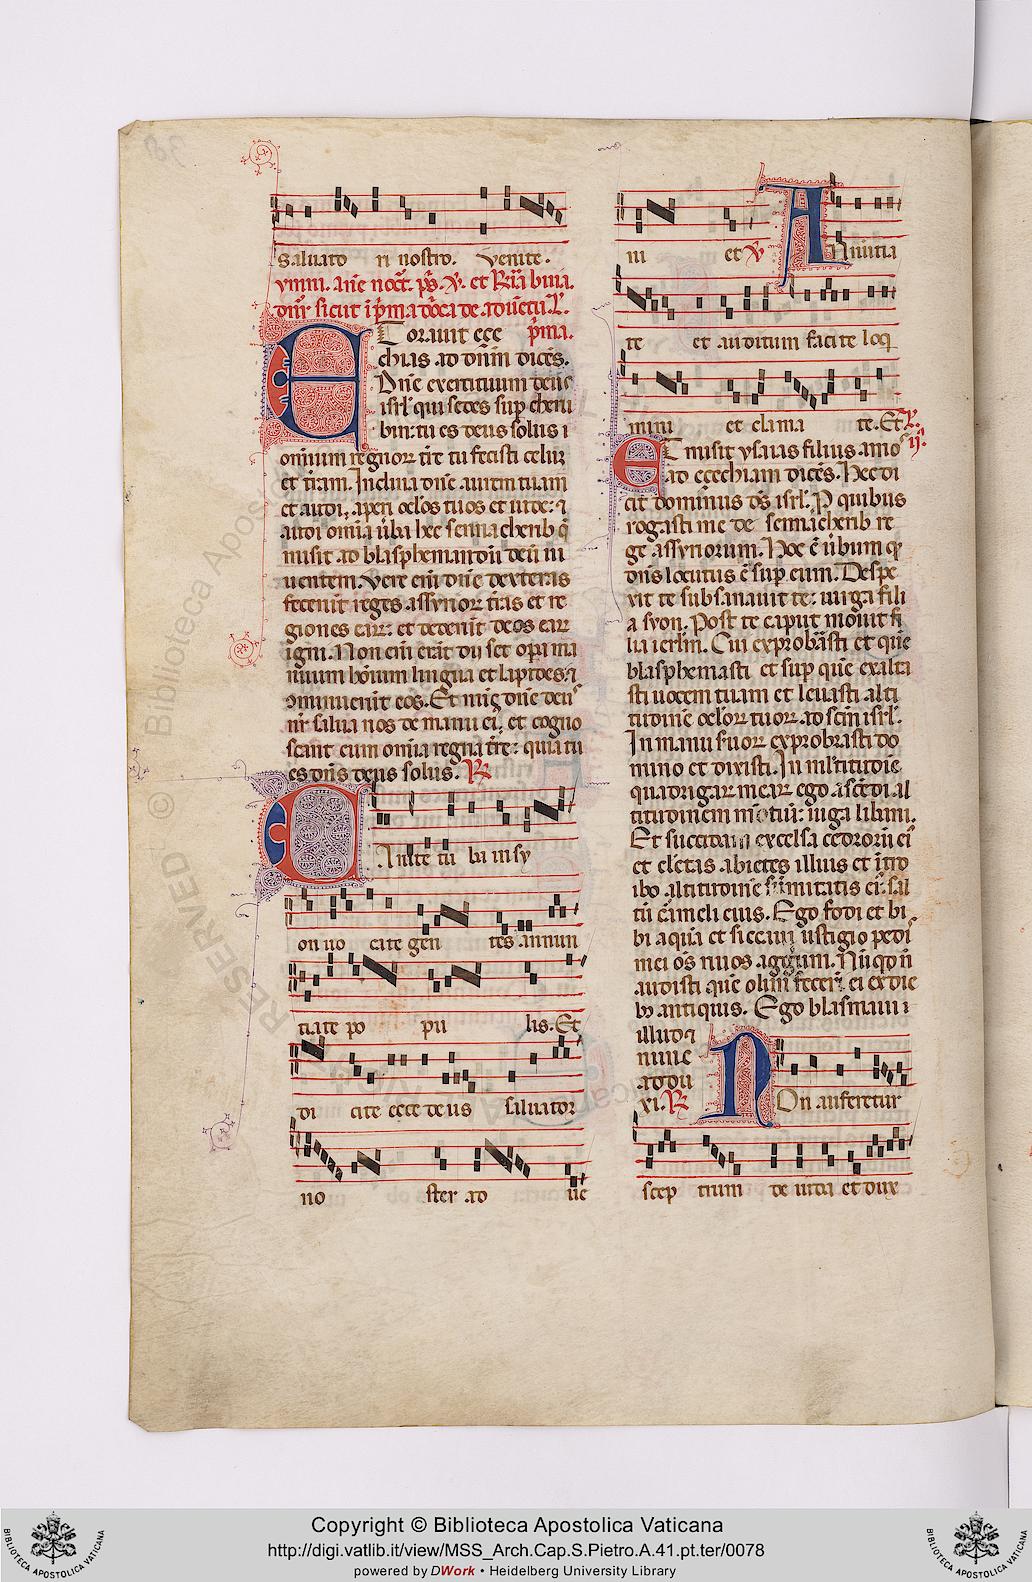 Saluato ri nostro. Venite.
E T orauit eze
chias ad dnm dicēs.
Dne exercituum deus
isrl qui sedes sup cheru
bin: tu es deus solus i
omnium regnorꝝ tre tu fecisti celuꝫ
et tram. Inclina dne aurem tuam
et audi, aperi oclos tuos et uide: ⁊
audi omīa uba hec sennacherib q̄
misit ad blasphemandū deū ui
uentem. Vere em̄ dne
fecerūt reges assyrioꝝ tras et re
giones earꝝ: et dederūt deos earꝝ
igni. Non em̄ erāt dii set opa ma
nuum hoīum lingna et lapides: ⁊
ꝯminuerūt eos. Et nūc dne deus
nr̄ salua nos de manu eiꝰ, et cogno
scant eum omīa regna tre: quia tu
es dns deus solus. ℞
C Anite tu ba in sy
on uo cate gen tes annun
tiate po pu lis. Et
di cite ecce deus saluator
no ster ad ue
ni et ℣ A Nnūtia
te et auditum facite loq
mini et clama te. Et L.
ij.
E T misit ysaias filius amos
ad ezechiam dicēs. Hec di
cit dominus ds isrl. P quibus
rogasti me de sennacherib re
ge assyriorum. Hoc ē ubum qꝰ
dns locutus ē sup eum. Despe
xit te subsanauit te: uirga filia
syon. Post te caput mouit fi
lia ierlm. Cui exprobrasti et que
blasphemasti et sup que exalta
sti uocem tuam et leuasti alti
tudine oclorꝝ tuorꝝ ad scm isrl.
In manu suorꝝ exprobrasti do
mino et dixisti. In mltitudie
quadrigarꝝ mearꝝ ego ascēdi al
titudinem mōtiū: iuga libani.
Et succidam excelsa cedrorū eiꝰ
et electas abietes illius et ītro
ibo altitudine sūmitatis eiꝰ sal
tū carmeli eius. Ego fodi et bi
bi aqua et siccaui uestigio pedū
mei os riuos aggerum. Nūqd nō
audisti que olim fecerī ei ex die
bꝫ antiquis. Ego
illud ⁊
nunc
addu
xi. ℞ N On auferetur
scep trum de iuda et dux
Copyright © Biblioteca Apostolica Vaticana
http://digi.vatlib.it/view/MSS_Arch.Cap.S.Pietro.A.41.pt.ter/0078
powered by DWork • Heidelberg University Library